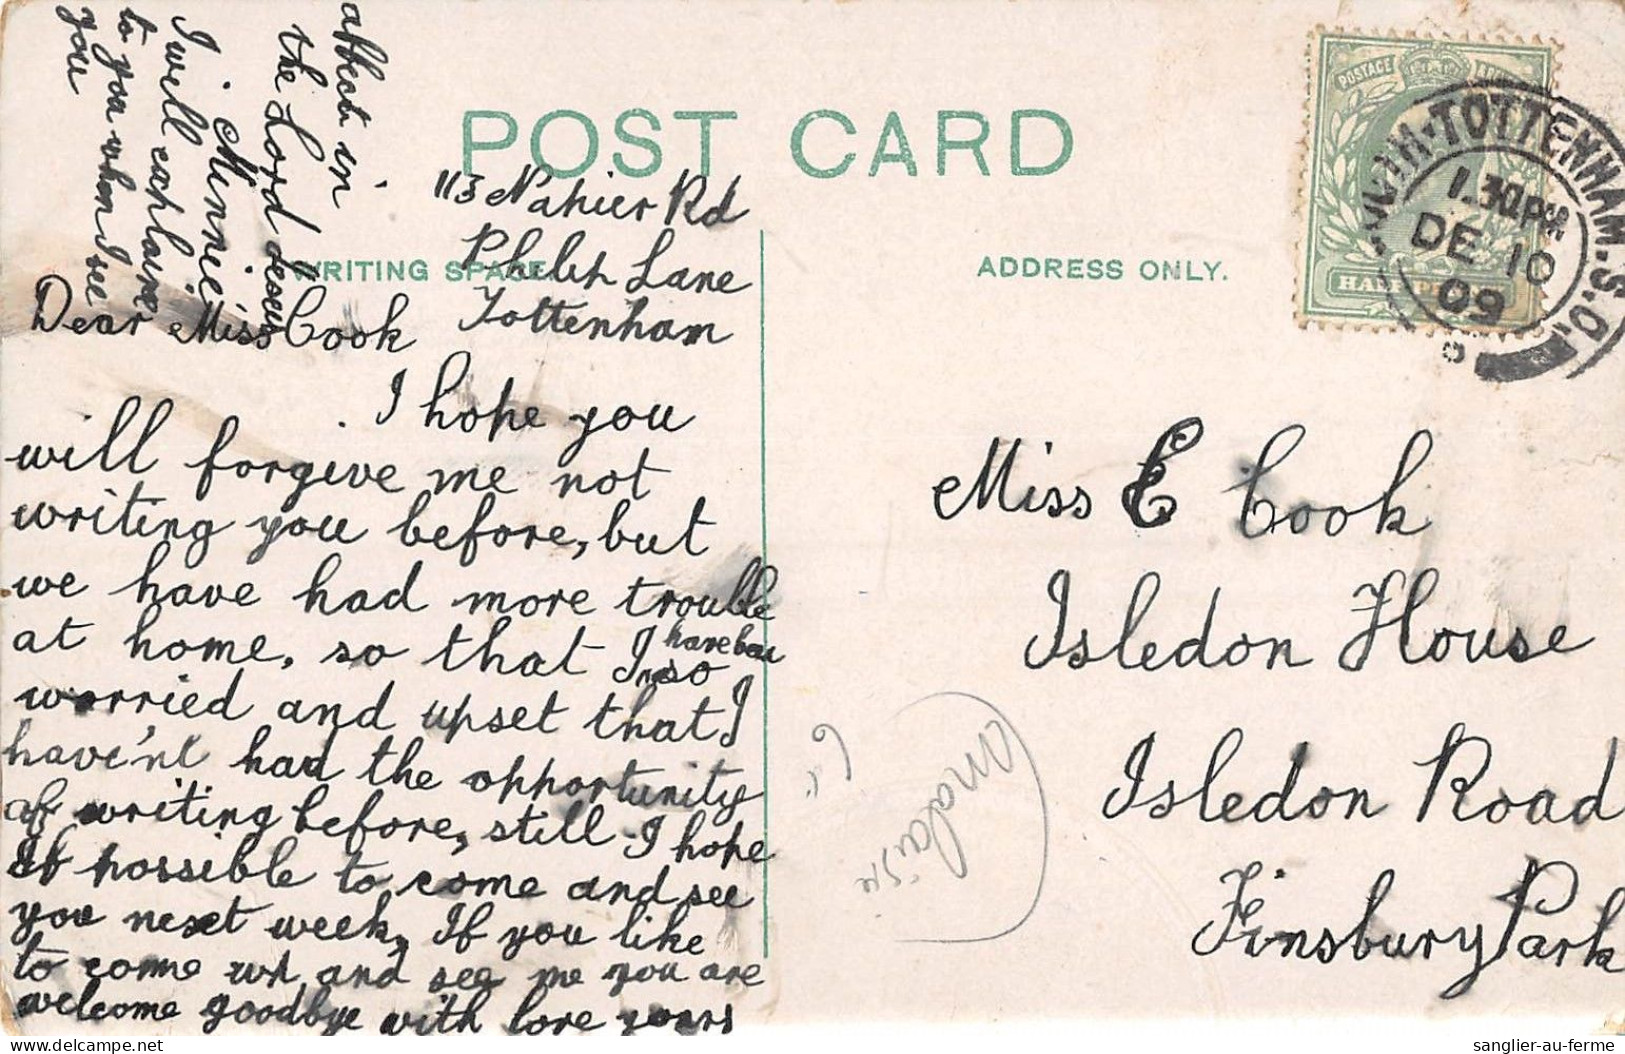 POST CARD
WRITING SPACE
ADDRESS ONLY.
POSTAGE
HALF PENNY
TOTTENHAM. S.O.
1.30 PM
DE 10
09
113 Napier Rd
Philip Lane
Tottenham
Dear Miss Cook
I hope you
will forgive me not
writing you before, but
we have had more trouble
at home, so that I have been so
worried and upset that I
have'nt had the opportunity
of writing before, still I hope
If possible to come and see
you next week, If you like
to come up and see me you are
welcome goodbye with love yours
affect in
the Lord Jesus
Minnie
I will explain
to you when I see
you
Miss E Cook
Isledon House
Isledon Road
Finsbury Park
sanglier-au-ferme
delcampe.net